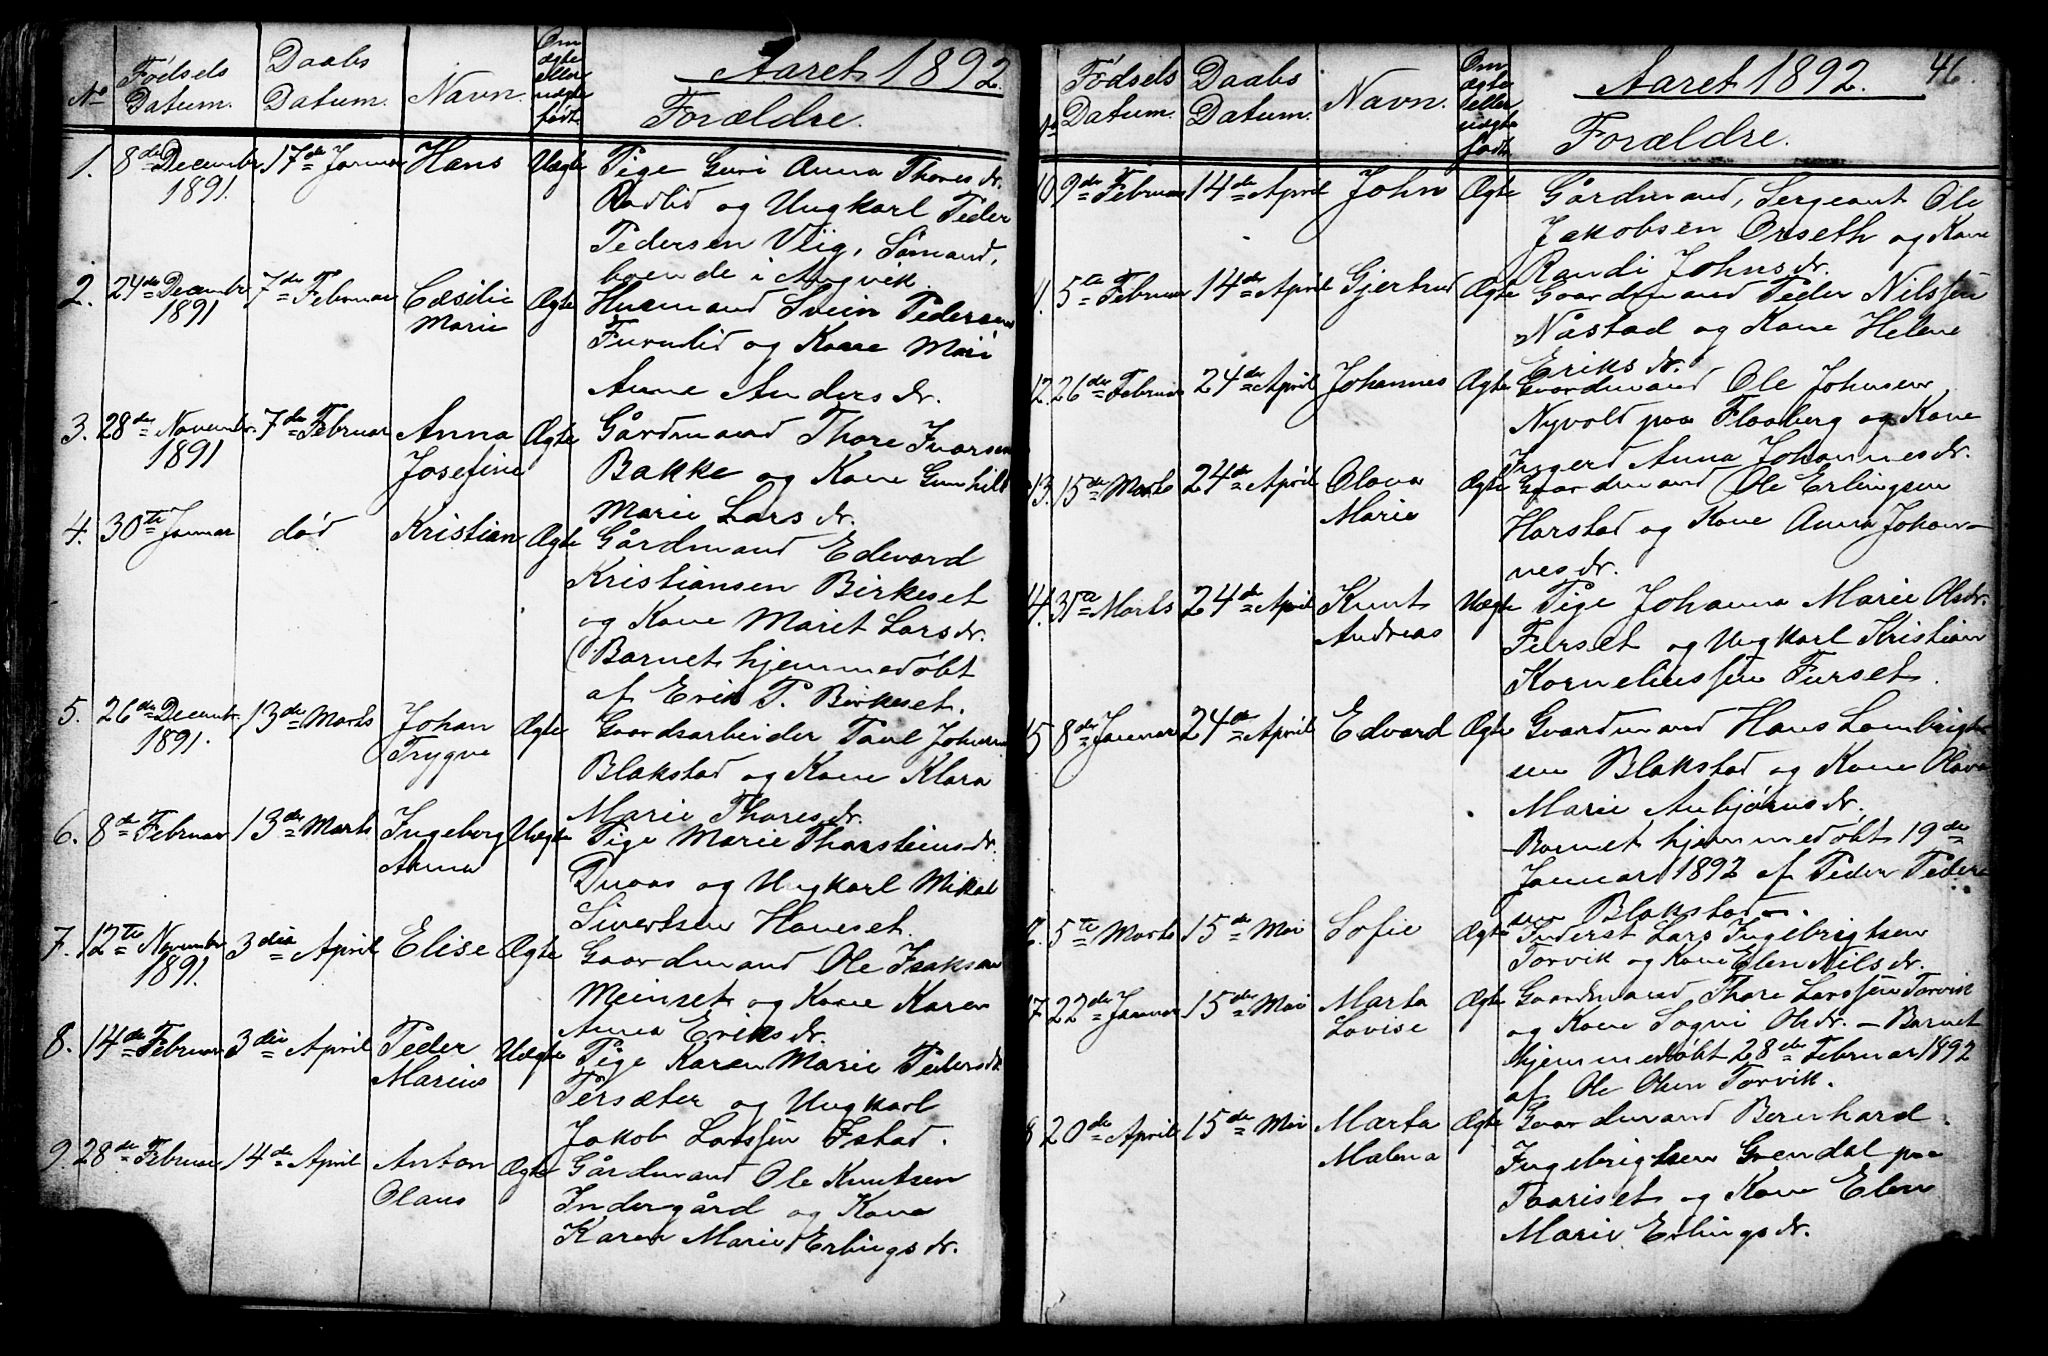 Aaret 1892.
No Fødsels Datum. Daabs Datum. Navn. Om ægte eller uægte født. Forældre.
1. 8de December 1891. 17de Januar Hans Uægte Pige Guri Anna Thoresdr.
Rødlid og Ungkarl Peder
Pedersen Viig, Sømand,
boende i Angvik.
2. 24de Decembr 1891 7de Februar Cæsilie Marie Ægte Husmand Svein Pedersen
Furulid og Kone Mari
Anne Andersdr.
3. 28de Novembr 1891 7de Februar Anna Josefine Ægte Gårdmand Thore Ivarsen
Bakke og Kone Gunhild
Marie Larsdr.
4. 30te Januar død Kristian Ægte Gårdmand Edevard
Kristiansen Birkeset
og Kone Maret Larsdr.
(Barnet hjemmedøbt
af Erik P. Birkeset.
5. 26de Decembr. 1891. 13de Marts Johan Trygve Ægte Gaardsarbeider Paul Johnsen
Blakstad og Kone Klara
Marie Thoresdr.
6. 8de Februar 13de Marts Ingeborg Anna Uægte Pige Marie Thorsteinsdr.
og Ungkarl Mikal
Sivertsen Haneset.
7. 12te Novembr 1891. 3die April Elise Ægte Gaardmand Ole Isaksen
Meinset og Kone Karen
Anna Eriksdr.
8. 14de Februar 3die April Peder Marius Uægte Pige Karen Marie Pedersdr.
Tersæter og Ungkarl
Jakob Larssen Istad.
9. 28de Februar 14de April Anton Olaus Ægte Gårdmand Ole Knutsen
Indergård og Kone
Karen Marie Erlingsdr.
46.
Aaret 1892.
No Fødsels Datum. Daabs Datum. Navn. Om ægte eller uægte født. Forældre.
10. 9de Februar 14de April John Ægte Gårdmand, Sergeant Ole
Jakobsen Orseth og Kone
Randi Johnsdr.
11. 5te Februar 14de April Gjertrud Ægte Gaardmand Peder Nilssen
Nåstad og Kone Helene
Eriksdr.
12. 26de Februar 24de April Johannes Ægte Gaardmand Ole Johnsen
Nyvold paa Flaaberg og Kone
Ingerd Anna Johannesdr.
13. 15de Marts 24de April Olava Marie Ægte Gaardmand Ole Erlingsen
Harstad og Kone Anna Johan-
nesdr.
14. 31te Marts 24de April Knut Andreas Uægte Pige Johanna Marie Olsdr.
Furset og Ungkarl Kristian
Korneliussen Furset.
15 8de Januar 24de April Edvard Ægte Gaardmand Hans Lambrigt-
sen Blakstad og Kone Olava
Marie Anbjørnsdr.
Barnet hjemmedøbt 19de
Januar 1892 af Peder Peder-
sen Blakstad.
5te Marts 15de Mai Sofie Ægte Inderst Lars Ingebrigtsen
Torvik og Kone Elen Nilsdr.
17 22de Januar 15de Mai Marta Lovise Ægte Gaardmand Thore Larssen Torvik
og Kone Sogni Olsdr. — Barnet
hjemmedøbt 28de Februar 1892
af Ole Olsen Torvik.
8 20de April 15de Mai Marta Malena Ægte Gaardmand Bernhard
Ingebrigtsen Grendal paa
Taariset og Kone Elen
Marie Erlingsdr.